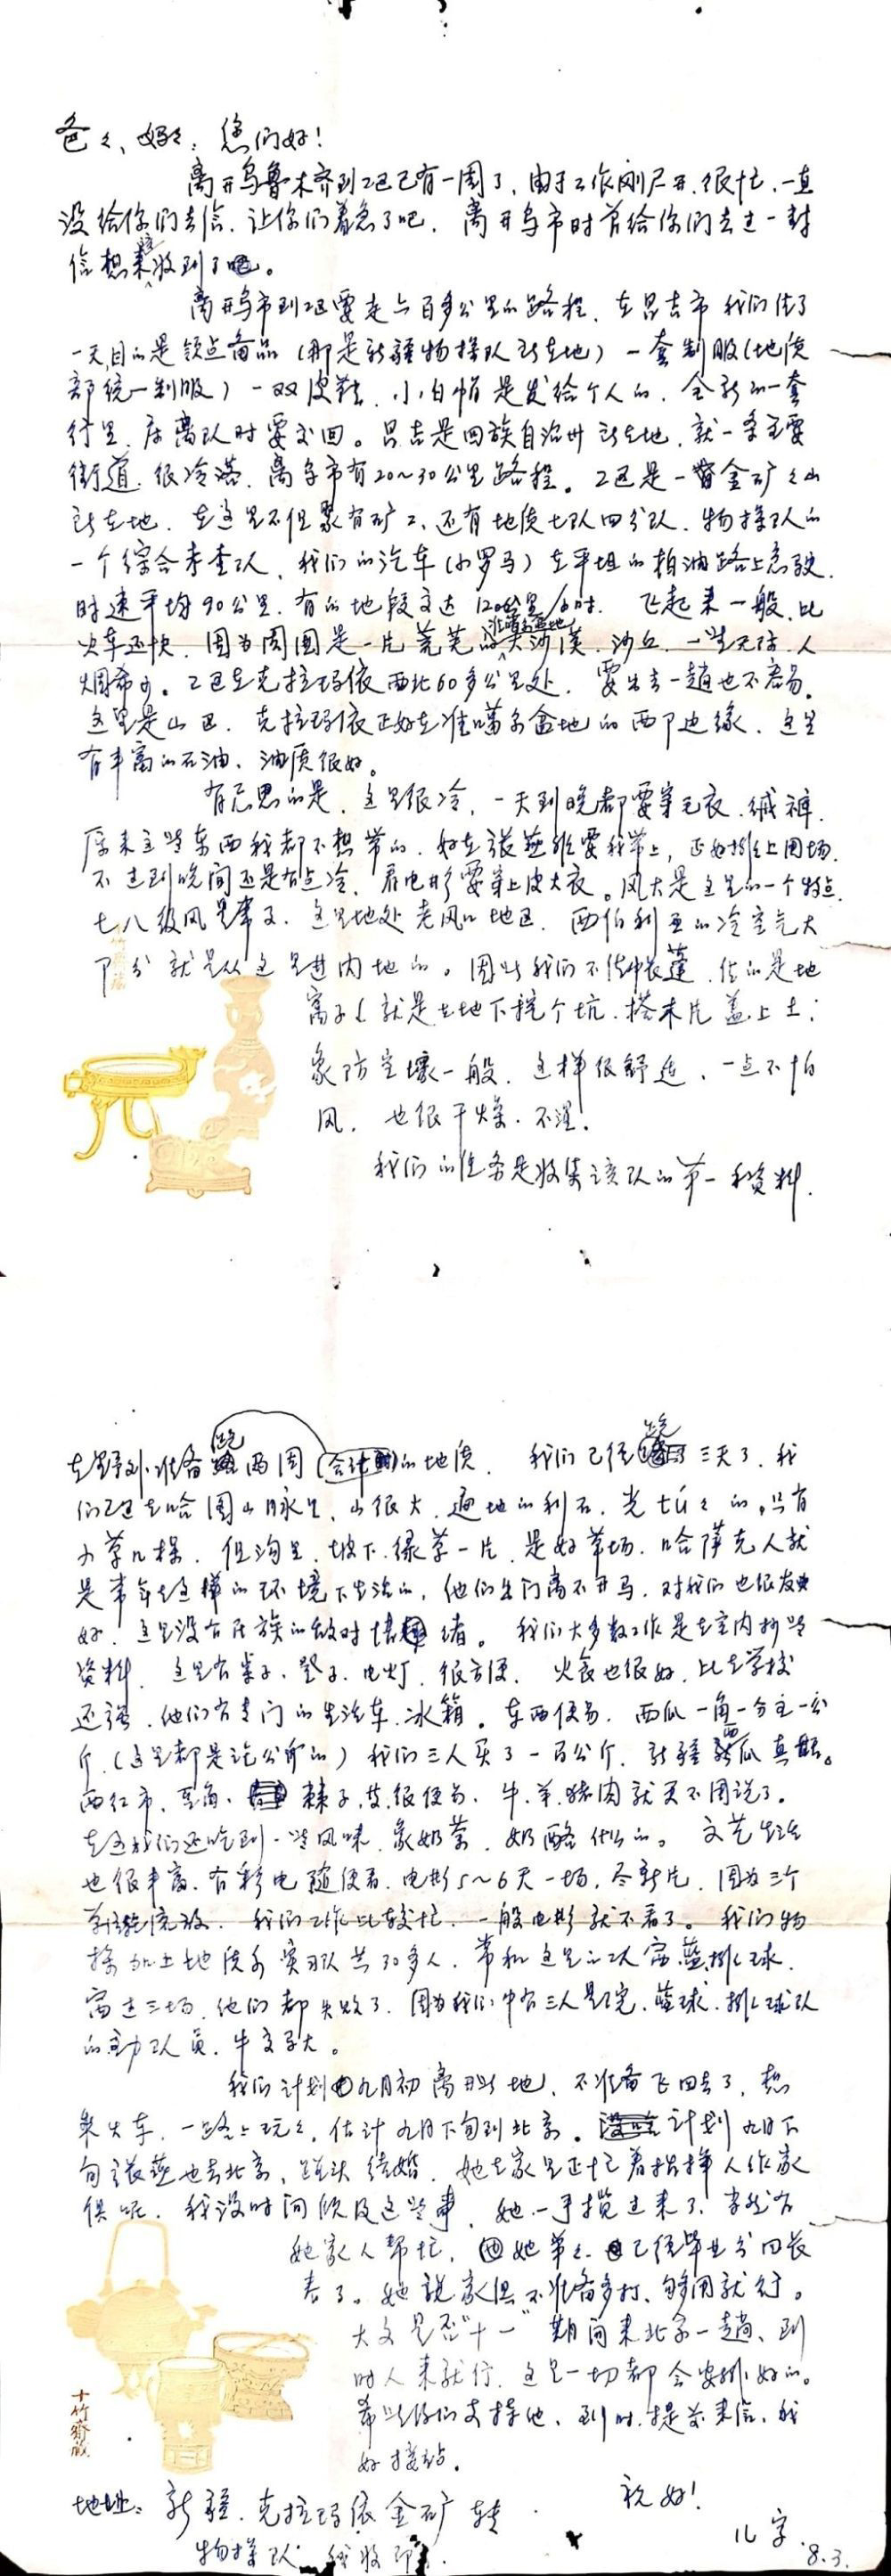 爸々、妈々：您们好！
离开乌鲁木齐到工区已有一周了，由于工作刚展开，很忙，一直
没给你们去信，让你们着急了吧，离开乌市时曾给你们去过一封
信想来该收到了吧。
离开乌市到工区要走六百多公里的路程，在昌吉市我们住了
一天，目的是领点备品（那是新疆物探队所在地）一套制服（地质
部统一制服）一双皮鞋、小白帽是发给个人的，全新的一套
行里，在离队时要交回。昌吉是回族自治州所在地，就一条主要
街道，很冷落，离乌市有20～30公里路程。工区是一金矿之山
所在地，在这里不但聚有矿工、还有地质七队四分队、物探队的
一个综合考查队，我们的汽车（小罗马）在平坦的柏油路上急驶，
时速平均90公里，有的地段高达120公里/小时，飞起来一般，比
火车还快，因为周围是一片荒芜的准噶尔盆地大沙漠、沙丘，一望无际，人
烟希少。工区在克拉玛依西北60多公里处，要出去一趟也不容易。
这里是山区，克拉玛依正好在准噶尔盆地的西部边缘，这里
有丰富的石油，油质很好。
有意思的是，这里很冷，一天到晚都要穿毛衣、绒裤，
原来这些东西我都不想带的，好在张燕非要我带上，正好排上用场，
不过到晚间还是有点冷，看电影要穿上皮大衣。风大是这里的一个特点，
七八级风是常事，这里地处老风口地区，西伯利亚的冷空气大
部分就是从这里进内地的。因此我们不住帐蓬，住的是地
窝子（就是在地下挖个坑，搭木片盖上土；
象防空壕一般，这样很舒适，一点不怕
风，也很干燥，不湿。
我们的任务是收集该队的第一手资料，
在野外准备跑两周（合计）的地质，我们已经跑三天了，我
们工区在哈图山脉里，山很大，遍地的利石，光秃々的，只有
小草几棵，但沟里，坡下，绿草一片，是好草场，哈萨克人就
是常年在这样的环境下生活的，他们出门离不开马，对我们也很友
好，这里没有民族的敌对情绪。我们大多数工作是在室内抄些
资料，这里有桌子、登子、电灯，很方便，火食也很好，比在学校
还强，他们有专门的生活车、冰箱。东西便易，西瓜一角一分一公
斤，（这里都是论公斤的）我们三人买了一百公斤，新疆西瓜真甜。
西红市、豆角、辣子，皆很便易，牛、羊、猪肉就更不用说了。
在这我们还吃到一些风味，象奶茶，奶酪什么的。文艺生活
也很丰富，有彩电随便看，电影5～6天一场，尽新片，因为三个
单位轮流放，我们工作比较忙，一般电影就不看了。我们物
探加上地质系实习队共30多人，常和这里的工人赛蓝排球，
赛过三场，他们都失败了，因为我们中有三人是院蓝球、排球队
的主力队员，牛高马大。
我们计划九月初离开此地，不准备飞回去了，想
乘火车，一路上玩々，估计九月下旬到北京。计划九月下
旬张燕也去北京，碰头结婚，她在家里正忙着指挥人作家
俱呢，我没时间顾及这些事，她一手揽过来了，当然有
她家人帮忙，她弟々已经毕业分回长
春了。她说家俱不准备多打，够用就行。
大文是否“十一”期间来北京一趟，到
时人来就行，这里一切都会安排好的。
希望你们支持他，到时提前来信，我
好接站。
祝好！
儿字
8.3.
地址：新疆，克拉玛依金矿转
物探队 我收即可。
十竹斋藏